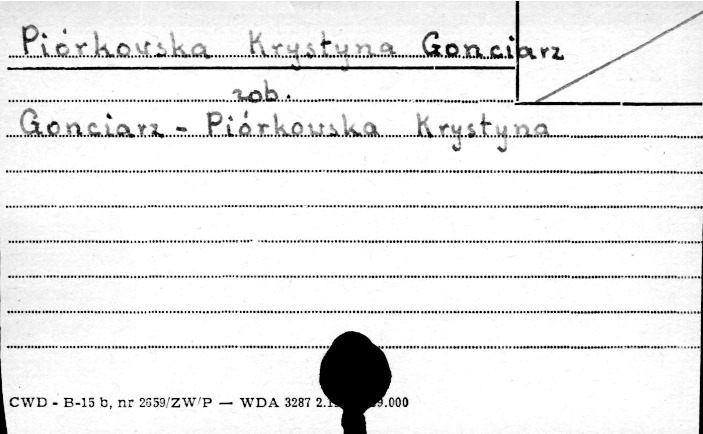 Piórkowska Krystyna Gonciarz
zob.
Gonciarz - Piórkowska Krystyna
CWD - B-15 b, nr 2659/ZW/P — WDA 3287